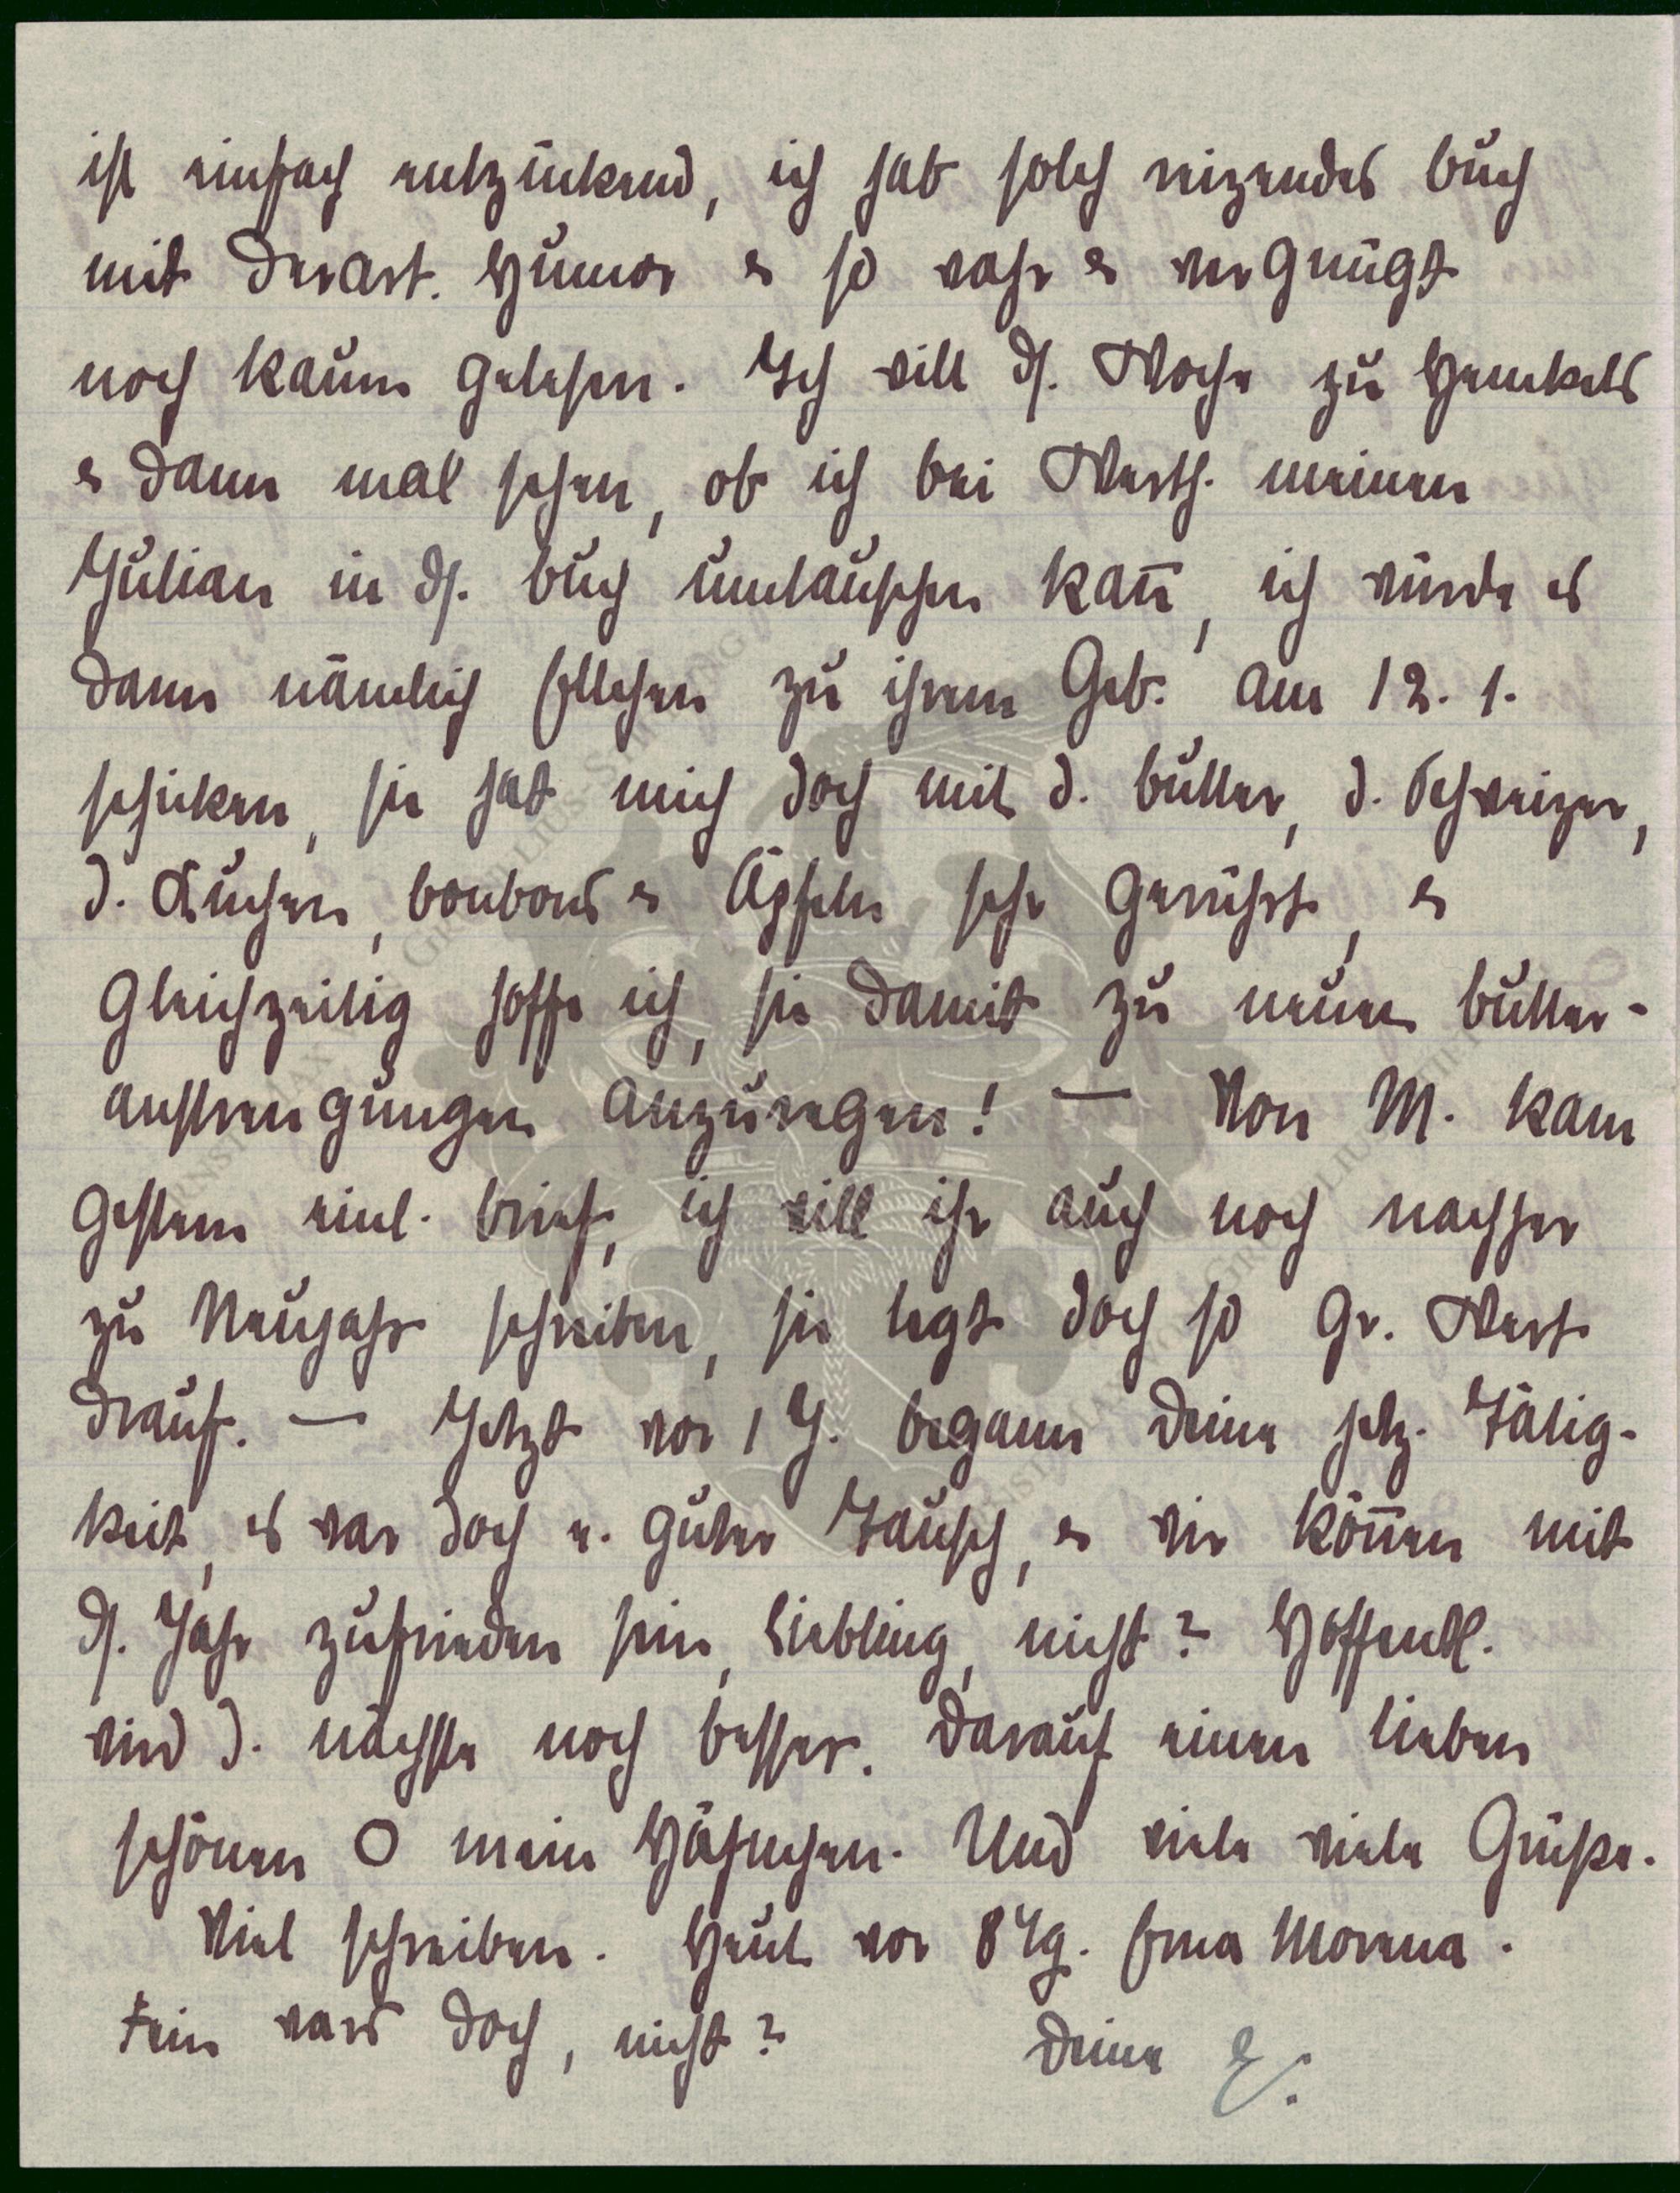 ist einfach entzückend, ich hab solch reizendes Buch
mit derart. Humor & so wahr & vergnügt
noch kaum gelesen. Ich will ds. Woche zu Henckels
& dann mal sehen, ob ich bei Werth. meinen
Julian in ds. Buch umtauschen kann, ich würde es
dann nämlich Ellchen zu ihrem Geb. am 12. 1.
schicken, sie hat mich doch mit d. Butter, d. Schweizer,
d. Kuchen, Bonbons & Äpfeln sehr gerührt, &
gleichzeitig hoffe ich, sie damit zu neuen Butter-
anstrengungen anzuregen! — Von M. kam
gestern einl. Brief, ich will ihr auch noch nachher
zu Neujahr schreiben, sie legt doch so gr. Wert
drauf. — Jetzt vor 1 J. begann Deine jetz. Tätig-
keit, es war doch e. guter Tausch, & wir können mit
ds. Jahr zufrieden sein, Liebling, nicht? Hoffentl.
wird d. nächste noch besser. Darauf einen lieben
schönen O mein Häschen. Und viele viele Grüße.
Viel schreiben. Heut vor 8 Tg. Morena.
Fein wars doch, nicht? Deine E.
ERNST MAX GREILIUS STIFTUNG